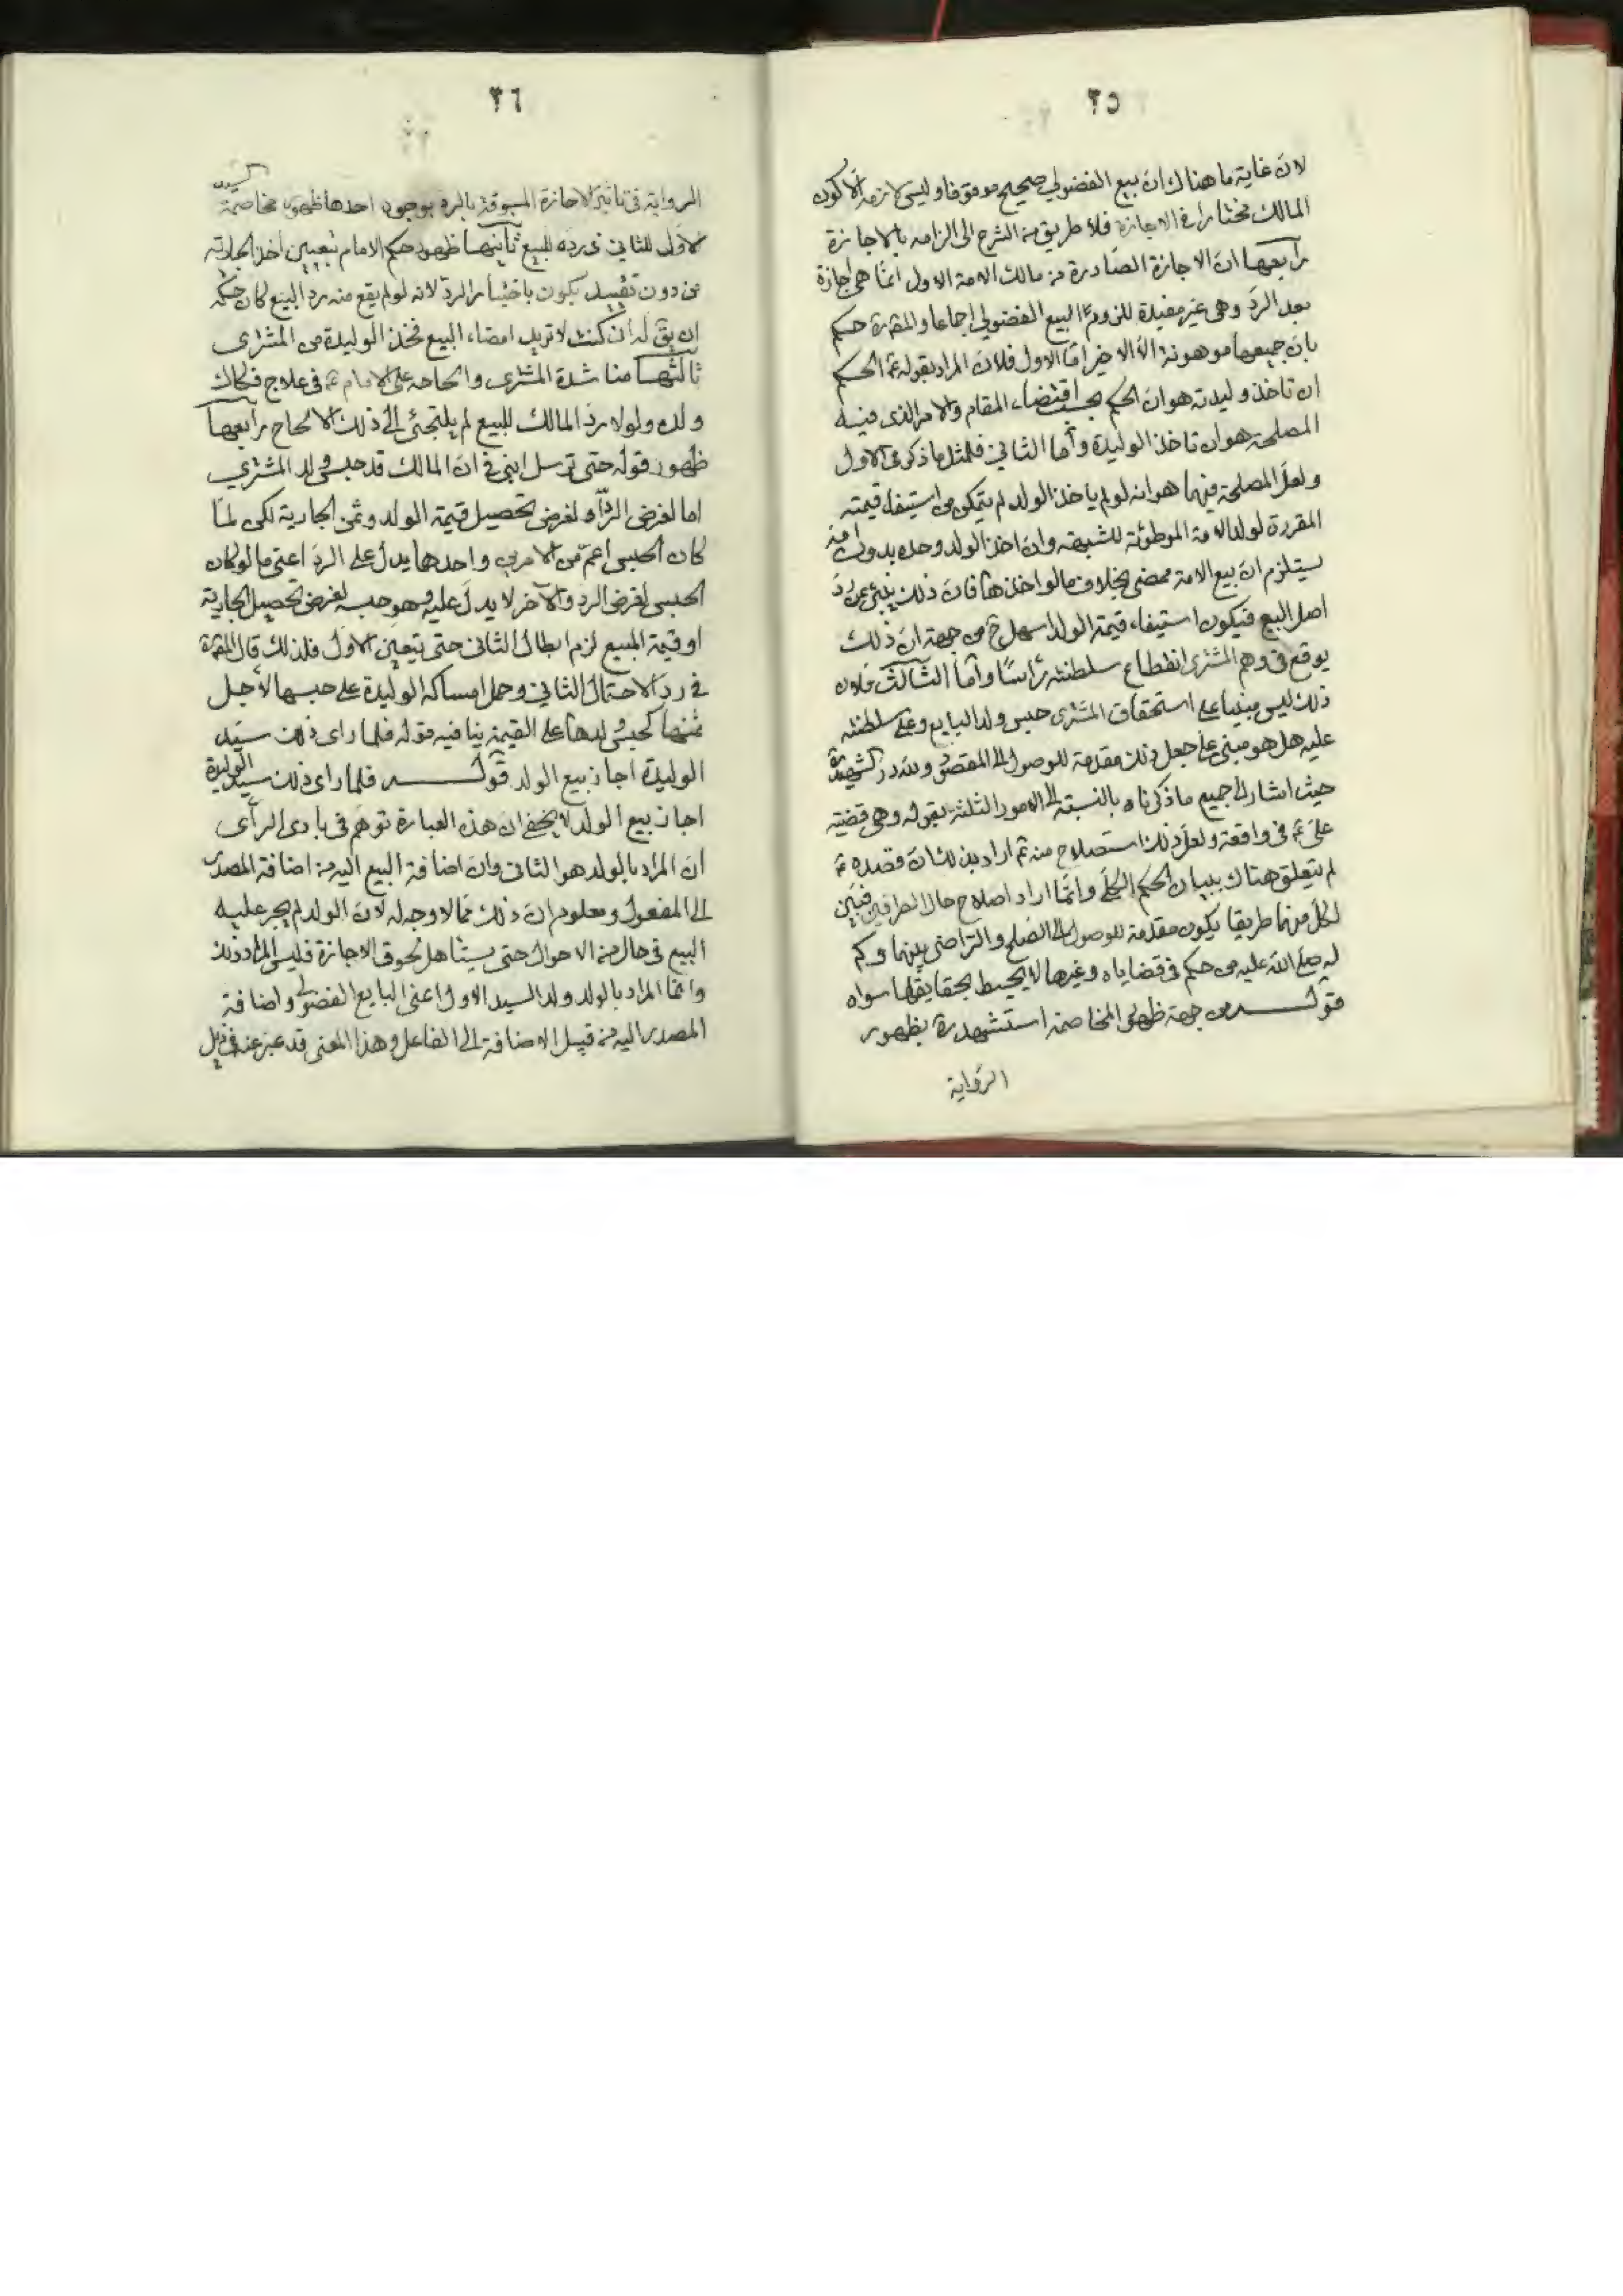 ٣٥
لانّ غاية ما هناك انّ بيع الفضولي صحيح موقوفا وليس لازمه الّا كون
المالك مختارا في الاجازة فلا طريق من الشرع الى الزامه بالاجازة
رابعها انّ الاجازة الصّادرة من مالك الامة الاول انمّا هى اجازة
بعد الردّ وهى غير مفيدة للزوم البيع الفضولي اجماعا والمقرّرة حكم
بانّ جميعها موهونة الّا الاخير امّا الاول فلانّ المراد بقوله ع الحكم
ان تاخذ وليدته هو انّ الحكم بحسب اقتضاء المقام والامر الذى فيه
المصلحة هو ان تاخذ الوليدة وأما الثاني فلمثل ما ذكر في الاول
ولعلّ المصلحة فيهما هو انه لو لم ياخذ الولد لم يتمكن من استيفاء قيمته
المقررة لولد الامة الموطوئة للشبهة وان اخذ الولد وحده بدون امه
يستلزم انّ بيع الامة ممضى بخلاف ما لو اخذهما فانّ ذلك ينبئ عن ردّ
اصل البيع فيكون استيفاء قيمة الولد اسهل ح من جهة انّ ذلك
يوقع في وهم المشترى انقطاع سلطنته رأسًا وأما الثالث فلان
ذلك ليس مبنيا على استحقاق المشترى حبس ولد البايع وعلى سلطنته
عليه هل هو مبنى على جعل ذلك مقدمة للوصول الى المقصود ولله در الشهيد ره
حيث اشار الى جميع ما ذكرناه بالنسبة الى الامور الثلثة بقوله وهى قضية
علىّ ع في واقعة ولعلّ ذلك استصلاح منه ع اراد بذلك ان قصده ع
لم يتعلق هناك ببيان الحكم الكلّى وانمّا اراد اصلاح حال الطرافين فبيّن
لكلّ منهما طريقا يكون مقدمة للوصول الى الصّلح والتراضى بينهما وكم
له صلى الله عليه من حكم في قضاياه وغيرها لا يحيط بحقايقها سواه
قوله من جهة ظهور المخاصمة استشهد ره بظهور
الرّواية
٣٦
الرواية في تاثير الاجازة المسبوقة بالرد بوجوه احدها ظهور مخاصمة السيد
الاوّل للثاني في رده للبيع ثانيها ظهور حكم الامام بتعيين اخذ الجارية
من دون تقييد بكون باختيار الردّ لانه لو لم يقع منه ردّ البيع كان حكمه
ان يق له ان كنت لا تريد امضاء البيع فخذ الوليدة من المشترى
ثالثها مناشدة المشترى والحاحه على الامام ع في علاج فكاك
ولده ولولا ردّ المالك للبيع لم يلتجئ الى ذلك الالحاح رابعها
ظهور قوله حتى ترسل ابنى في انّ المالك قد حبس ولد المشترى
اما لغرض الردّ او لغرض تحصيل قيمة الولد وثمن الجارية لكن لمّا
كان الحبس اعمّ من الامرين واحدهما يدلّ على الردّ اعنى ما لو كان
الحبس لغرض الرد والآخر لا يدلّ عليه وهو حبسه لغرض تحصيل الجارية
او قيمة المبيع لزم ابطال الثانى حتى يتعين الاوّل فلذلك قال المقرّرة
في ردّ الاحتمال الثاني وحمل امساكه الوليدة على حبسها لاجل
ثمنها كحبس ولدها على القيمة ينافيه قوله فلما راى ذلك سيّد
الوليدة اجاز بيع الولد قوله فلما راى ذلك سيد الوليدة
اجاز بيع الولد لا يخفى انّ هذه العبارة توهم في بادى الرأى
انّ المراد بالولد هو الثانى وانّ اضافة البيع اليه من اضافة المصدر
الى المفعول ومعلوم انّ ذلك ممّا لا وجه له لانّ الولد لم يجر عليه
البيع في حال من الاحوال حتى يستاهل لحوق الاجازة فليس المراد ذلك
وانما المراد بالولد ولد السيد الاول اعنى البايع الفضولى واضافة
المصدر اليه من قبيل الاضافة الى الفاعل وهذا المعنى قد عبر عنه في ذيل